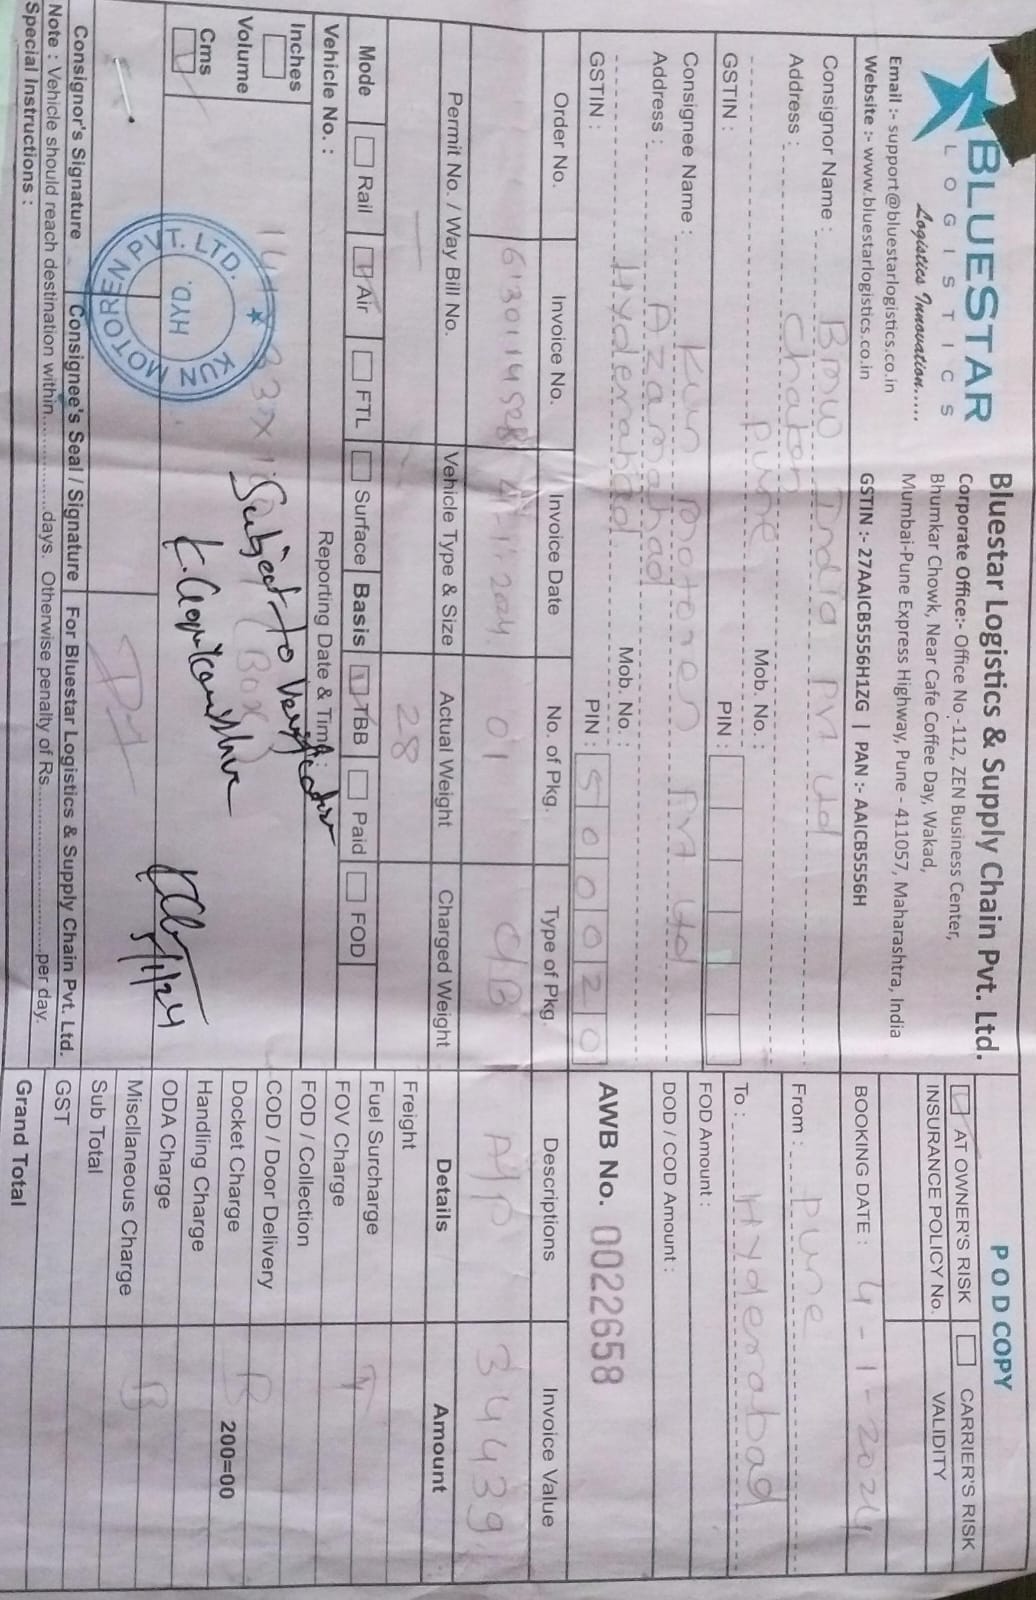 BLUESTAR
LOGISTICS
Logistics Innovation.....
Email :- support@bluestarlogistics.co.in
Website :- www.bluestarlogistics.co.in
Bluestar Logistics & Supply Chain Pvt. Ltd.
Corporate Office:- Office No -112, ZEN Business Center,
Bhumkar Chowk, Near Cafe Coffee Day, Wakad,
Mumbai-Pune Express Highway, Pune - 411057, Maharashtra, India
GSTIN :- 27AAICB5556H1ZG | PAN :- AAICB5556H
POD COPY
AT OWNER'S RISK CARRIER'S RISK
INSURANCE POLICY No. VALIDITY
BOOKING DATE : 4-1-2024
Consignor Name : BMW India Pvt Ltd
Address : Chakan
Pune Mob. No. :
GSTIN : PIN :
From : Pune
To : Hyderabad
Consignee Name : Kun motoren Pvt Ltd
Address : Azamabad
Hyderabad Mob. No. :
GSTIN : PIN : 500020
FOD Amount :
DOD / COD Amount :
AWB No. 0022658
Order No. Invoice No. Invoice Date No. of Pkg. Type of Pkg. Descriptions Invoice Value
6130114528 4.1.2024 01 C/B 34439
Permit No. / Way Bill No. Vehicle Type & Size Actual Weight Charged Weight Details Amount
28
Freight
Mode Rail Air FTL Surface Basis TBB Paid FOD
Fuel Surcharge
Vehicle No. : Reporting Date & Time :
FOV Charge
FOD / Collection
COD / Door Delivery
Docket Charge 200=00
Handling Charge
ODA Charge
Miscllaneous Charge
Sub Total
GST
Grand Total
Inches
Volume
Cms
(Box)
Subject to
5/1/24
KUN MOTOREN PVT. LTD.
HYD.
Consignor's Signature Consignee's Seal / Signature For Bluestar Logistics & Supply Chain Pvt. Ltd.
Note : Vehicle should reach destination within...............days. Otherwise penalty of Rs...............................per day.
Special Instructions :